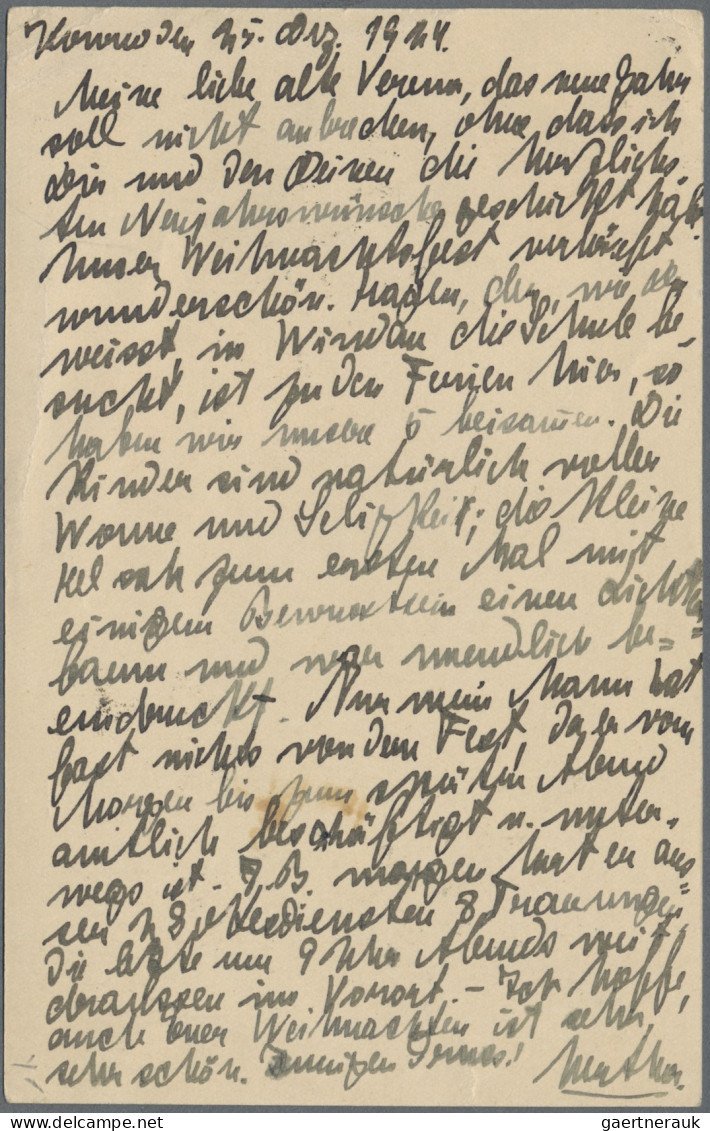 Kowno den 25. Dez. 1924.
Meine liebe alte Verena, das neue Jahr
soll nicht anbrechen, ohne dass ich
Dir und den Deinen die herzlichs-
ten Neujahrswünsche geschickt habe.
Unser Weihnachtsfest verläuft
wunderschön. Hagen, der, wie du
weisst, in Windau die Schule be-
sucht, ist zu den Ferien hier, so
haben wir unsere 5 beisamen. Die
Kinder sind natürlich voller
Wonne und Seligkeit; die kleine
Hel sah zum ersten Mal mit
einigem Bewusstsein einen Lichter-
baum und war unendlich be-
eindruckt. Nur mein Mann hat
fast nichts von dem Fest, da er vom
Morgen bis zum späten Abend
amtlich beschäftigt u. unter-
wegs ist. Z.B. morgen hat er aus-
ser 3 Gottesdiensten 8 Trauungen.
Die letzte um 9 Uhr Abends weit
draussen im Vorort. - Ich hoffe,
auch Euer Weihnachten ist sehr,
sehr schön. Innigen Gruss!
Hertha.
gaertnerauk